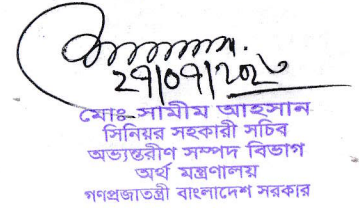 ২৭/০৭/২০২৩
মোঃ সামীম আহসান
সিনিয়র সহকারী সচিব
অভ্যন্তরীণ সম্পদ বিভাগ
অর্থ মন্ত্রণালয়
গণপ্রজাতন্ত্রী বাংলাদেশ সরকার